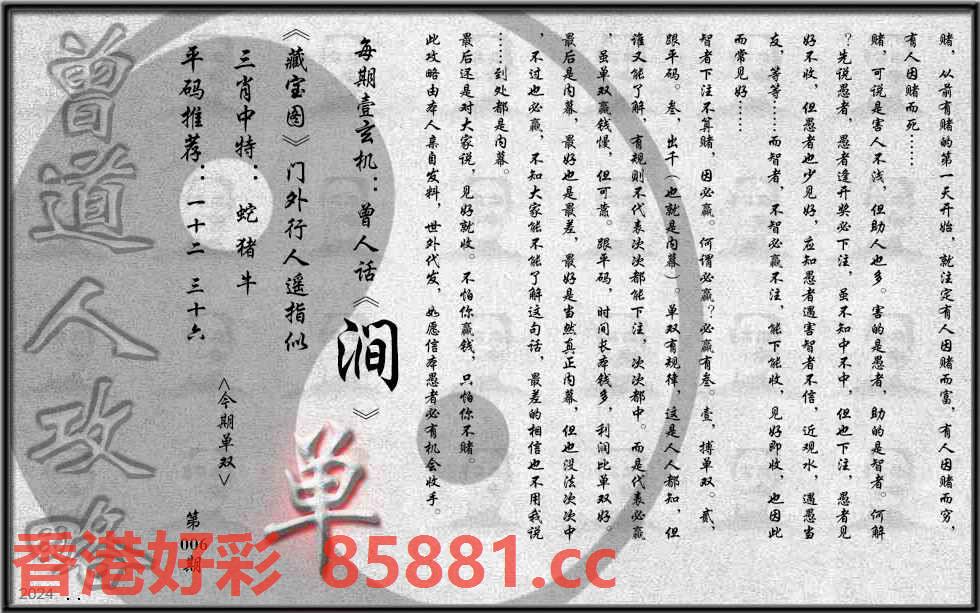 赌，从前有赌的第一天开始，就注定有人因赌而富，有人因赌而穷，
有人因赌而死……
赌，可说是害人不浅，但助人也多。害的是愚者，助的是智者。何解
？先说愚者，愚者逢开奖必下注，虽不知中不中，但也下注，愚者见
好不收，但愚者也少见好，应知愚者遇害智者不信，近观水，遇愚当
友，等等……而智者，不智必赢不注，能下能收，见好即收，也因此
而常见好……
智者下注不算赌，因必赢。何谓必赢？必赢有叁。壹，搏单双。贰，
跟平码。叁，出千（也就是内幕）。单双有规律，这是人人都知，但
谁又能了解，有规则不代表次次都能下注，次次都中。而是代表必赢
，虽单双赢钱慢，但可靠。跟平码，时间长本钱多，利润比单双好。
最后是内幕，最好也是最差，最好是当然真正内幕，但也没法次次中
，不过也必赢，不知大家能不能了解这句话，最差的相信也不用我说
……到处都是内幕。
最后还是对大家说，见好就收。不怕你赢钱，只怕你不赌。
此攻略由本人亲自发料，世外代发，如愿信本愚者必有机会收手。
每期壹玄机：曾人话《涧》
《藏宝图》门外行人遥指似
三肖中特：蛇猪牛
平码推荐：一十二 三十六
<今期单双>
单
第
006
期
曾道人攻略
香港好彩 85881.cc
2024